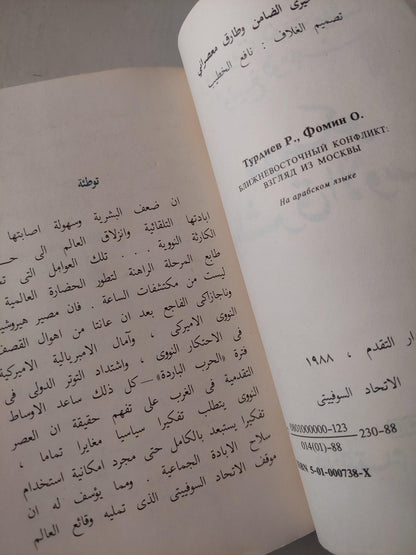 خيرى الضامن وطارق معصرانى
تصميم الغلاف : نافع الخطيب
Турдиев Р., Фомин О.
БЛИЖНЕВОСТОЧНЫЙ КОНФЛИКТ:
ВЗГЛЯД ИЗ МОСКВЫ
На арабском языке
دار التقدم ، ١٩٨٨
الاتحاد السوفييتى
0801000000-123
014(01)-88
230-88
ISBN 5-01-000738-X
توطئة
ان ضعف البشرية وسهولة اصابتها
ابادتها التلقائية وانزلاق العالم الى
الكارثة النووية . . . تلك العوامل التى
طابع المرحلة الراهنة لتطور الحضارة العالمية
ليست من مكتشفات الساعة . فان مصير هيروشيما
وناجازاكى الفاجع بعد ان عانتا من اهوال القصف
النووى الاميركى ، وآمال الامبريالية الاميركية
فى الاحتكار النووى ، واشتداد التوتر الدولى فى
فترة «الحرب الباردة» — كل ذلك ساعد الاوساط
التقدمية فى الغرب على تفهم حقيقة ان العصر
النووى يتطلب تفكيرا سياسيا مغايرا تماما ،
تفكيرا يستبعد بالكامل حتى مجرد امكانية استخدام
سلاح الابادة الجماعية . ومما يؤسف له ان
موقف الاتحاد السوفييتى الذى تمليه وقائع العالم